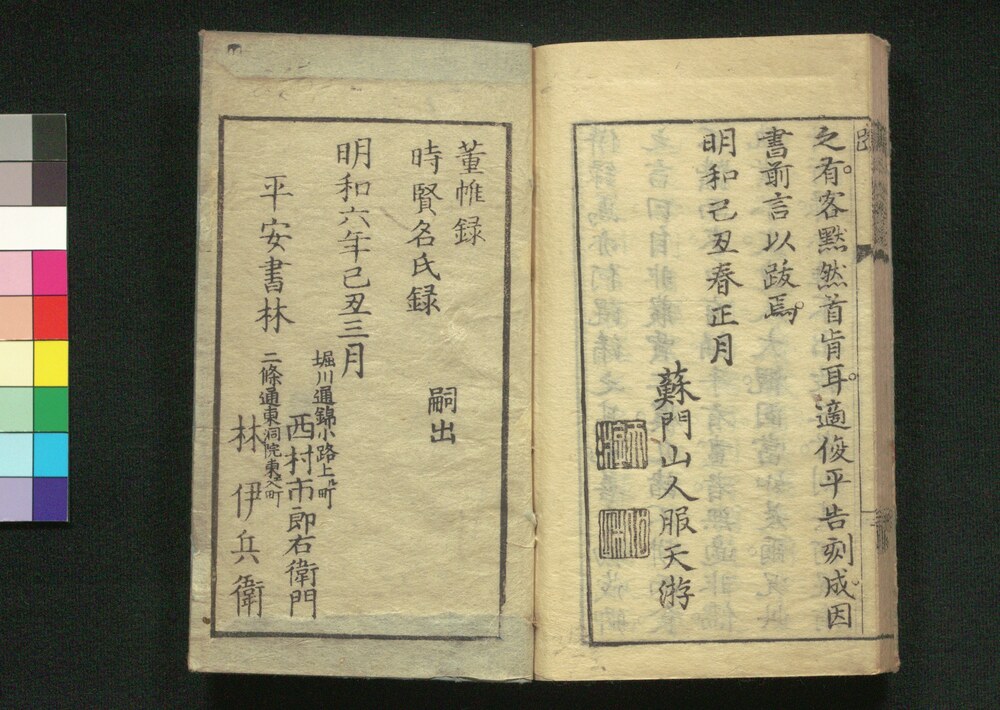 之有客黙然首肯耳適俊平告刻成因
書前言以跋焉
明和己丑春正月
蘇門山人服天游
董帷録
時賢名氏録
嗣出
明和六年己丑三月
平安書林
堀川通錦小路上町
西村市郎右衛門
二條通東洞院東入町
林伊兵衛